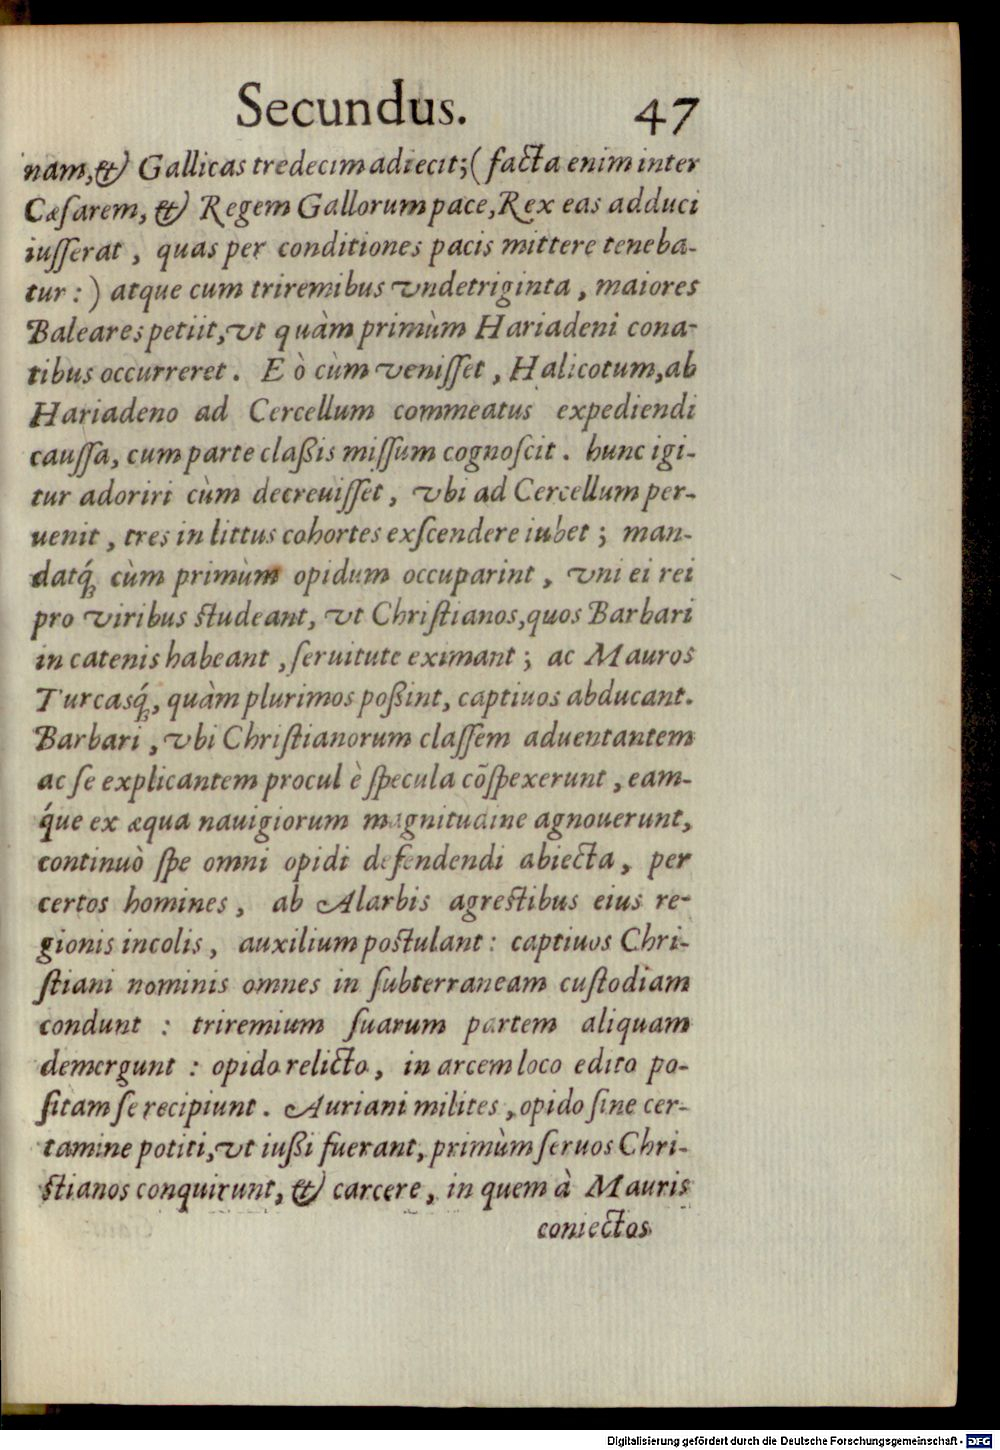 Secundus. 47
nam, & Gallicas tredecim adiecit; ( facta enim inter
Cæſarem, & Regem Gallorum pace, Rex eas adduci
iuſſerat, quas per conditiones pacis mittere teneba-
tur: ) atque cum triremibus vndetriginta, maiores
Baleares petiit, vt quàm primùm Hariadeni cona-
tibus occurreret. Eò cùm veniſſet, Halicotum, ab
Hariadeno ad Cercellum commeatus expediendi
cauſſa, cum parte claßis miſſum cognoſcit. hunc igi-
tur adoriri cùm decreuiſſet, vbi ad Cercellum per-
uenit, tres in littus cohortes exſcendere iubet; man-
datq́ꝫ cùm primùm opidum occuparint, vni ei rei
pro viribus ſtudeant, vt Chriſtianos, quos Barbari
in catenis habeant, ſeruitute eximant; ac Mauros
Turcasq́ꝫ, quàm plurimos poßint, captiuos abducant.
Barbari, vbi Chriſtianorum claſſem aduentantem
ac ſe explicantem procul è ſpecula cõſpexerunt, eam-
q́ue ex æqua nauigiorum magnitudine agnouerunt,
continuò ſpe omni opidi defendendi abiecta, per
certos homines, ab Alarbis agreſtibus eius re-
gionis incolis, auxilium poſtulant: captiuos Chri-
ſtiani nominis omnes in ſubterraneam cuſtodiam
condunt : triremium ſuarum partem aliquam
demergunt : opido relicto, in arcem loco edito po-
ſitam ſe recipiunt. Auriani milites, opido ſine cer-
tamine potiti, vt iußi fuerant, primùm ſeruos Chri-
ſtianos conquirunt, & carcere, in quem à Mauris
coniectos
Digitalisierung gefördert durch die Deutsche Forschungsgemeinschaft - DFG